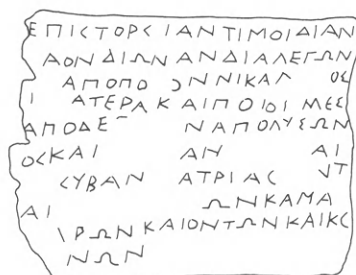 ΕΠΙΣΤΟΡΣΙΑΝΤΙΜΟΙΔΙΑΝ
ΑΟΝΔΙΩΝΑΝΔΙΑΛΕΓΩΝ
ΑΠΟΠΟ ΟΝΝΙΚΑΛ ΟΣ
Ι ΑΤΕΡΑΚΑΙΠΟΙΟΙΜΕΣ
ΑΠΟΔΕ ΝΑΠΟΛΥΣΩΝ
ΟΣΚΑΙ ΑΝ ΑΙ
ΣΥΒΑΝ ΑΤΡΙΑΣ ΝΤ
ΑΙ ΩΝΚΑΜΑ
ΡΩΝΚΑΙΟΝΤΩΝΚΑΙΚΣ
ΝΩΝ